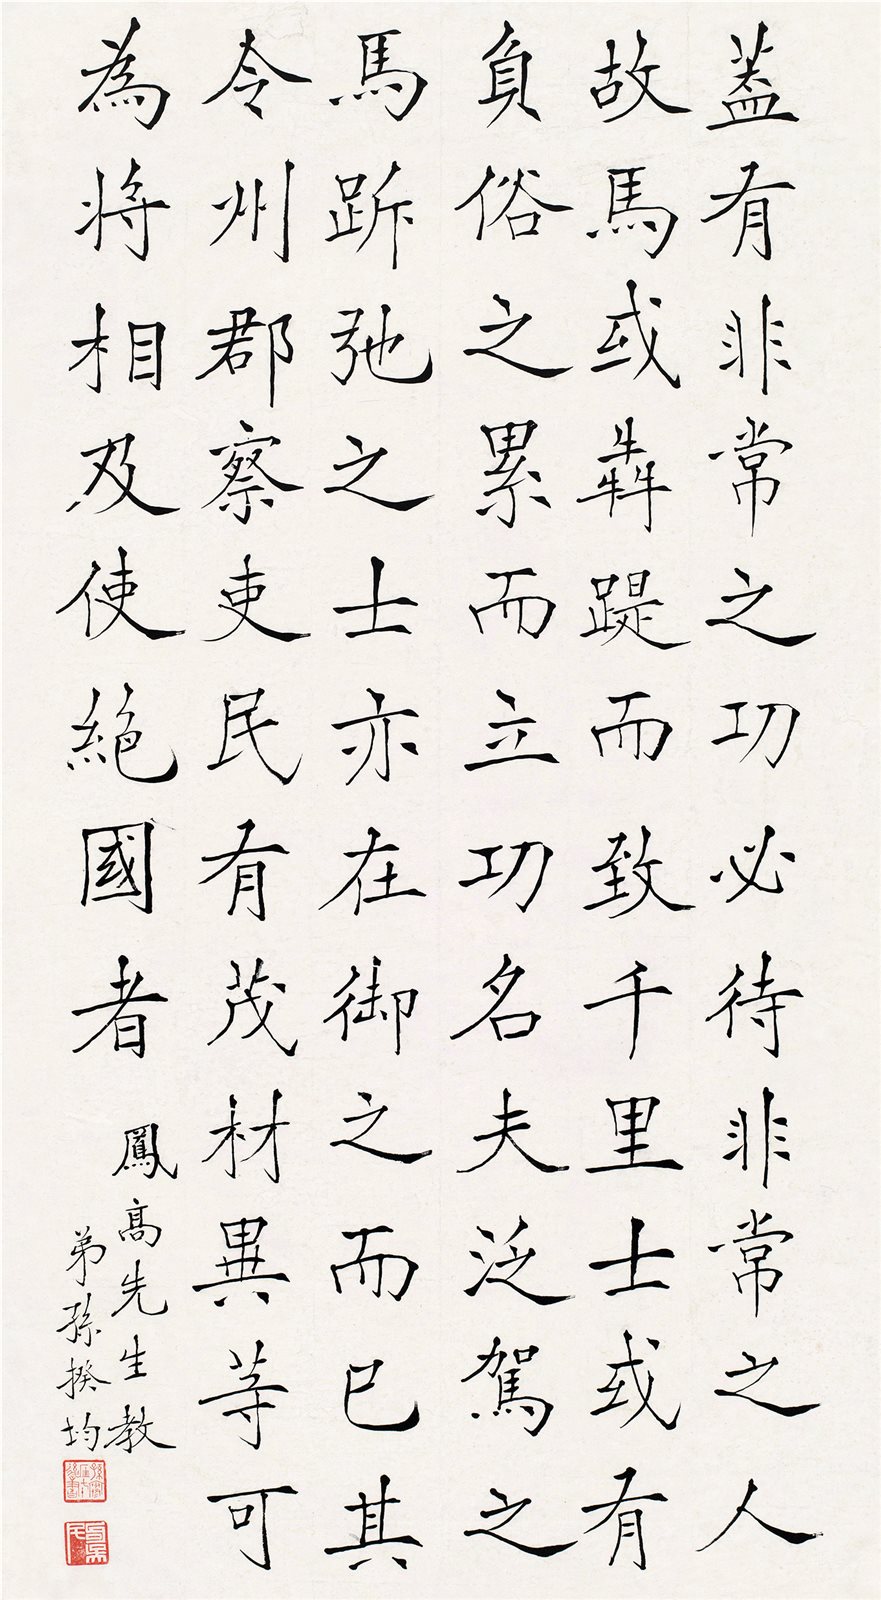 蓋有非常之功必待非常之人
故馬或犇踶而致千里士或有
負俗之累而立功名夫泛駕之
馬跅弛之士亦在御之而已其
令州郡察吏民有茂材異等可
為將相及使絕國者
鳳高先生教
弟孫揆均